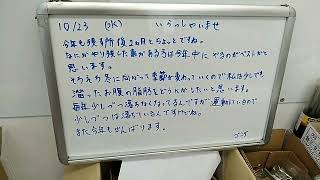 10/23 (水) いらっしゃいませ
今年も残す所後2ヵ月とちょっとですね。
なにかやり残した事がある方は今年中にやるのがベストかと
思います。
そろそろ冬に向かって季節が変わっていくので私は少しでも
溜ったお腹の脂肪をどうにかしたいと思います。
毎年少しづつ落ちなくなってるんですが運動しているので
少しづつは落ちているんですけどね。
また今年もがんばります。